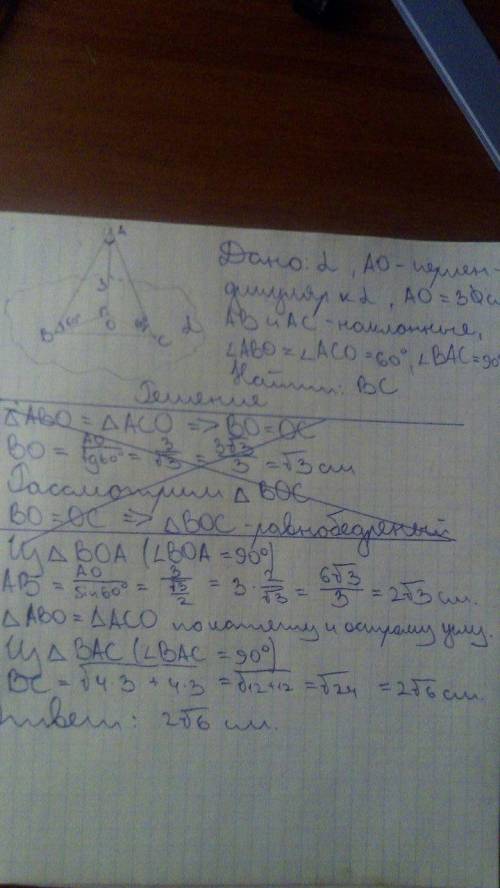 A
3
B 60° O 60° C α
Дано: α, AO - перпен-
дикуляр к α, AO = 3 см
AB и AC - наклонные,
∠ABO = ∠ACO = 60°, ∠BAC = 90°
Найти: BC
Решение
△ABO = △ACO => BO = OC
BO = AO/tg60° = 3/√3 = 3√3/3 = √3 см
Рассмотрим △ BOC
BO = OC => △BOC - равнобедренный
Из △ BOA (∠BOA = 90°)
AB = AO/Sin60° = 3/(√3/2) = 3 · 2/√3 = 6√3/3 = 2√3 см.
△ABO = △ACO по катету и острому углу.
Из △ BAC (∠BAC = 90°)
BC = √4·3 + 4·3 = √12+12 = √24 = 2√6 см.
Ответ: 2√6 см.